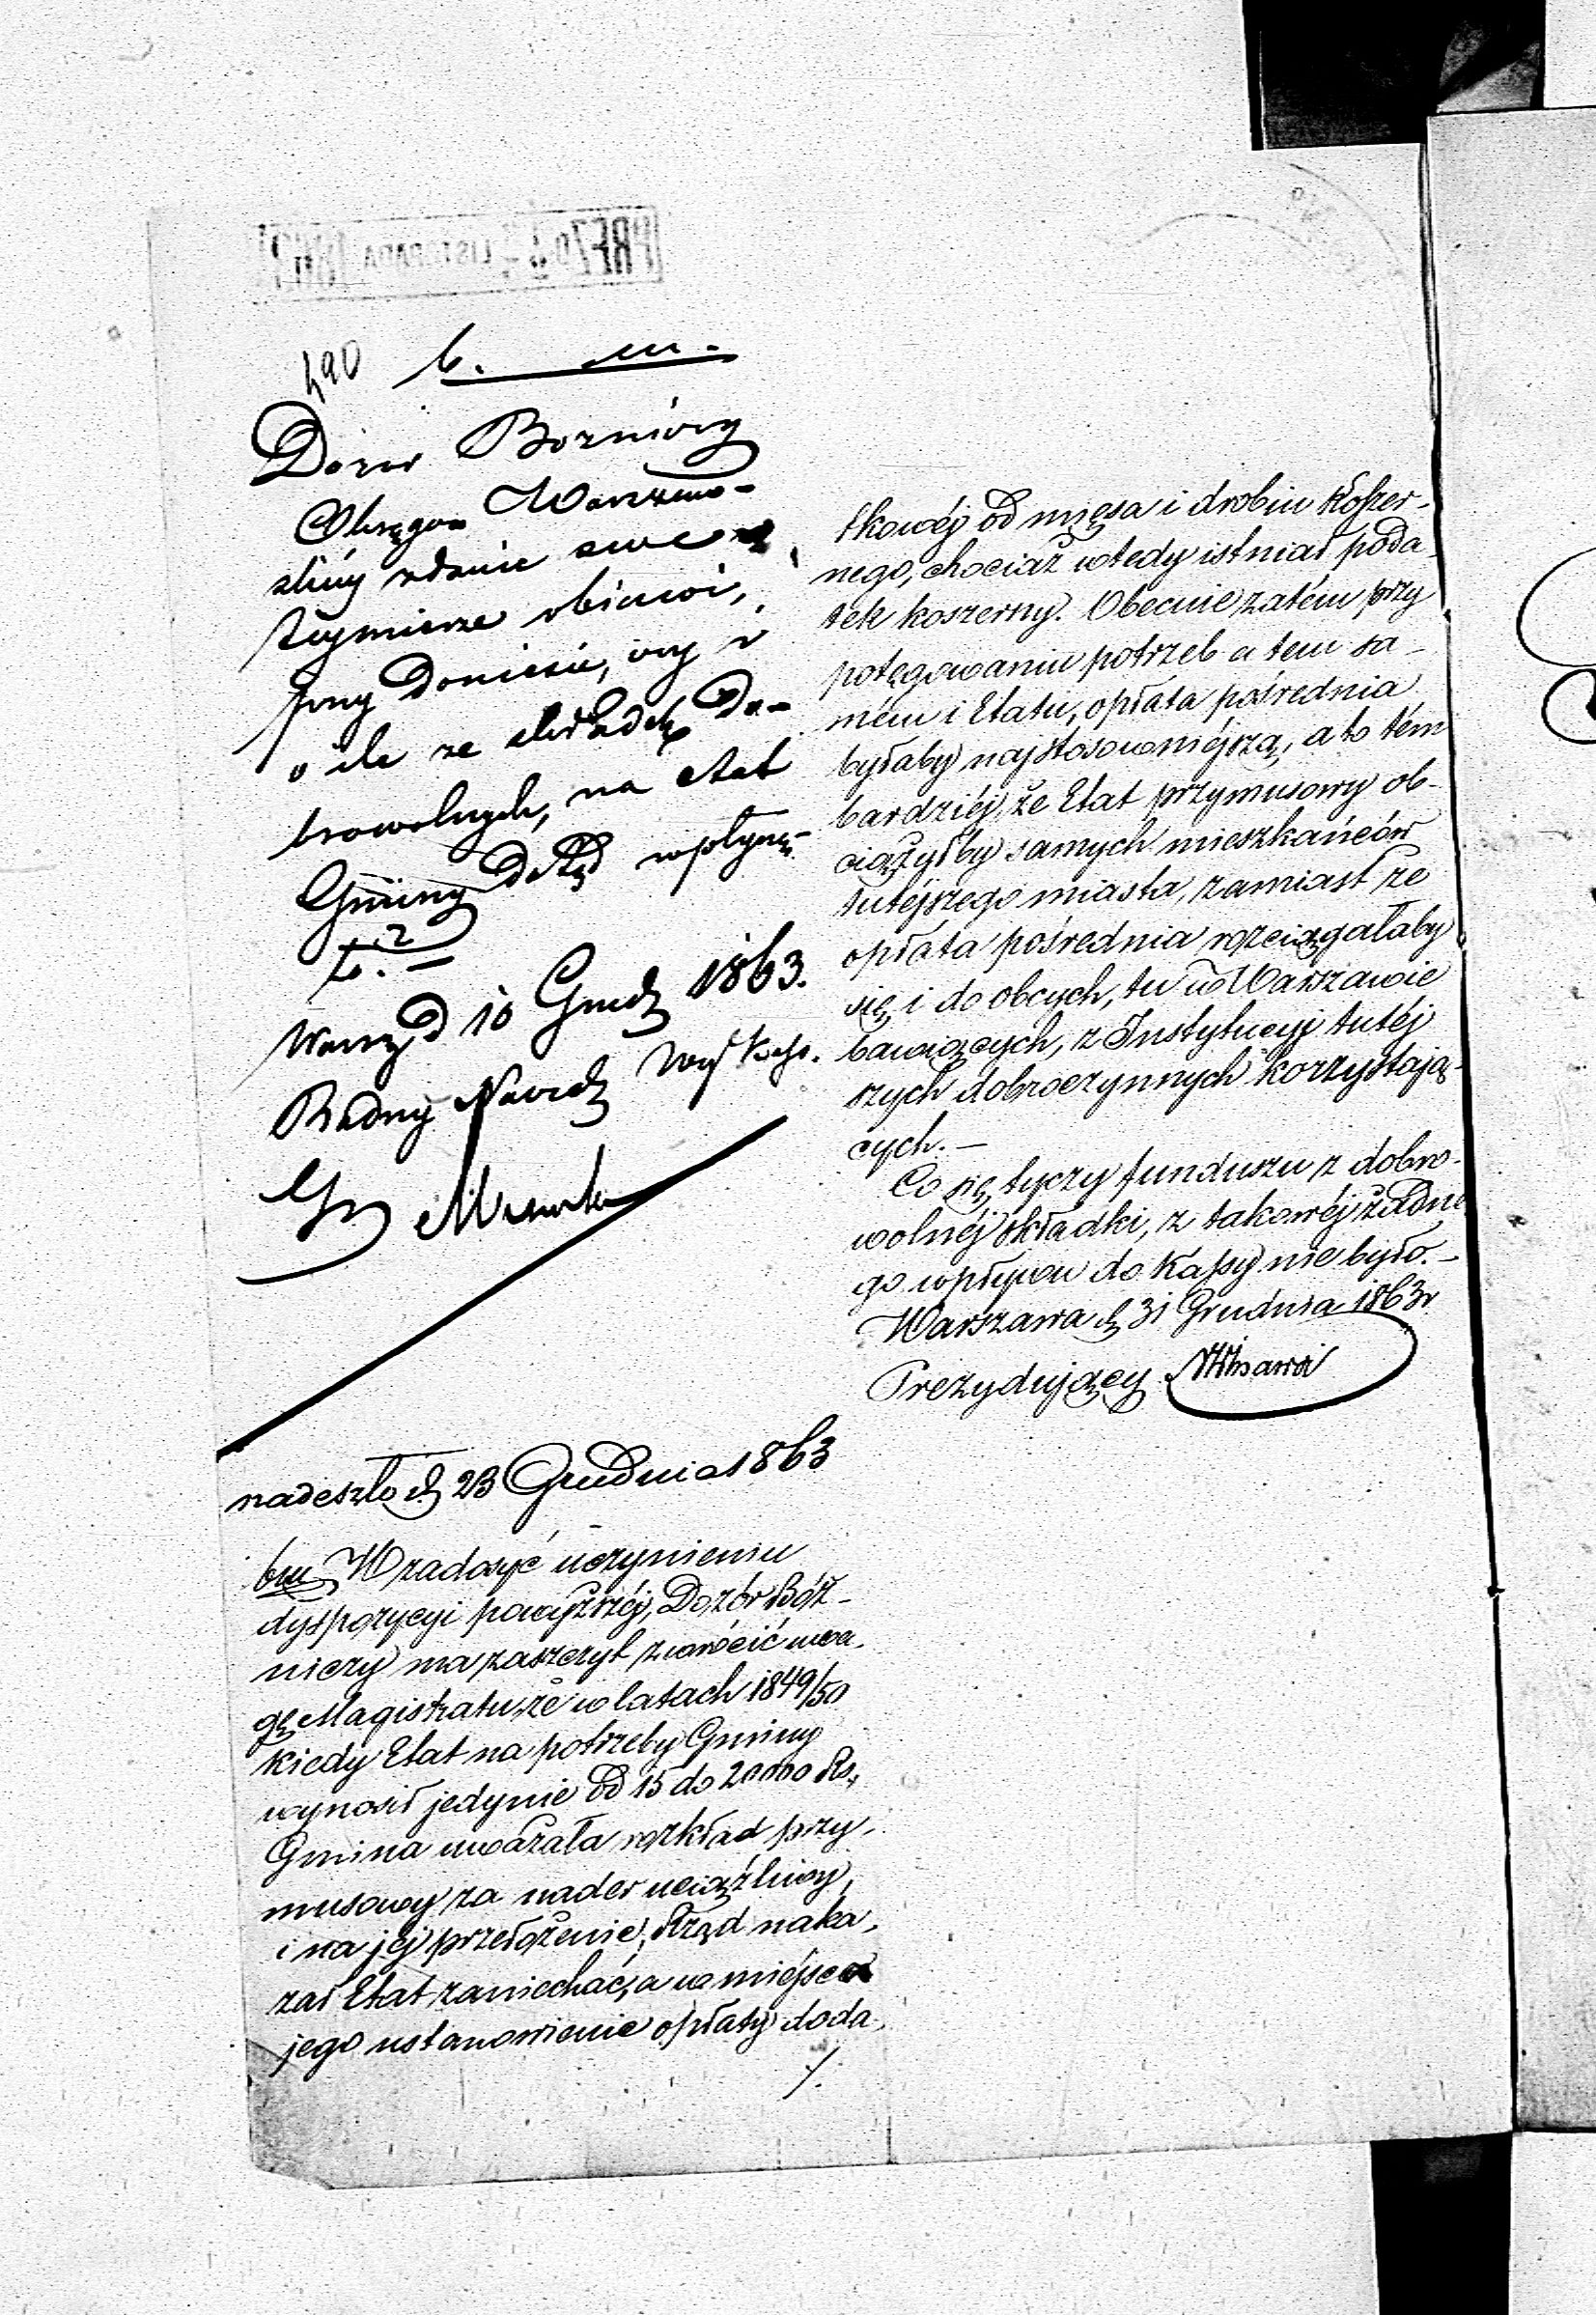 490 b. m.
Dozór Bożniczy
Okręgów Warszaws-
zdanie swe
w tymmierze objawi,
doniesie, czy i
o ile ze składek do-
browolnych, na etat
Gminy dotąd wpłynę-
ło.
Warsz d 10 Grud 1863.
Radny
nadeszło d 23 Grudnia 1863
bm W zadosyć uczynieniu
dyspozycyi powyższéj, Dozór Bóż-
niczy ma zaszczyt zwrócić uwa-
gę Magistratu, że w latach 1849/50
kiedy Etat na potrzeby Gminy
wynosił jedynie od 15 do 20000 Rs,
Gmina uważała rozkład przy-
musowy za nader uciążliwy,
i na jéj przełożenie, Rząd naka-
zał Etat zaniechać, a w miéjsce
jego ustanowienie opłaty doda-
/.
tkowéj od mięsa i drobiu koszer-
nego, chociaż wtedy istniał poda-
tek koszerny. Obecnie zatém przy
potęgowaniu potrzeb a tem sa-
mém i Etatu, opłata pośrednia
byłaby najstosowniéjszą, a to tém
bardziéj, że Etat przymusowy ob-
ciążyłby samych mieszkańców
tutéjszego miasta, zamiast że
opłata pośrednia rozciągałaby
się i do obcych, tu w Warszawie
bawiących, z Instytucyj tutéj
szych dobroczynnych korzystają-
cych. —
Co się tyczy funduszu z dobro-
wolnéj składki, z takowéj żadne
go wpływu do Kassy nie było. —
Warszawa d 31 Grudnia 1863r
Prezydujący